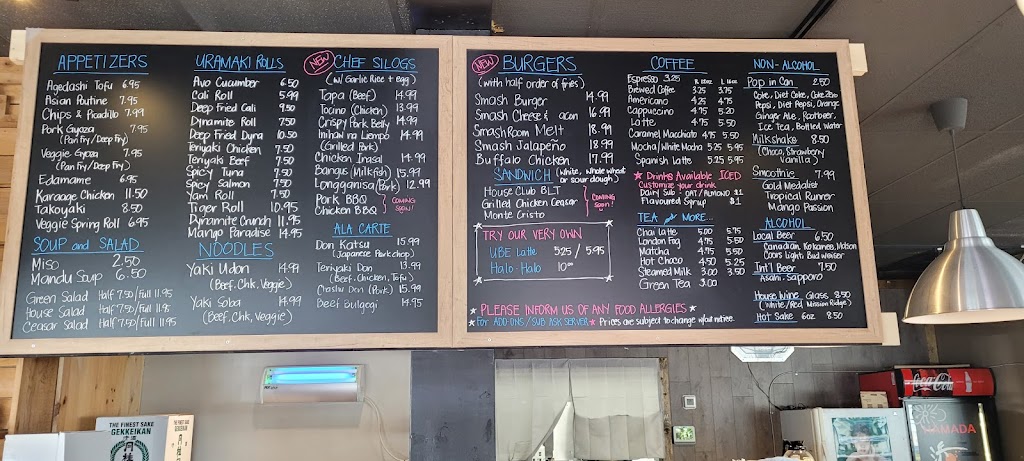 APPETIZERS
Agedashi Tofu 6.95
Asian Poutine 7.95
Chips & Picadillo 7.99
Pork Gyoza 7.95
(Pan Fry/Deep Fry)
Veggie Gyoza 7.95
(Pan Fry/Deep Fry)
Edamame 6.95
Karaage Chicken 11.50
Takoyaki 8.50
Veggie Spring Roll 6.95
SOUP and SALAD
Miso 2.50
Mandu Soup 6.50
Green Salad Half 7.50/Full 11.95
House Salad Half 7.50/Full 11.95
Ceasar Salad Half 7.50/Full 11.95
URAMAKI ROLLS
Avo Cucumber 6.50
Cali Roll 5.99
Deep Fried Cali 9.50
Dynamite Roll 7.50
Deep Fried Dyna 10.50
Teriyaki Chicken 7.50
Teriyaki Beef 7.50
Spicy Tuna 7.50
Spicy Salmon 7.50
Yam Roll 7.50
Tiger Roll 10.95
Dynamite Crunch 11.95
Mango Paradise 14.95
NOODLES
Yaki Udon 14.99
(Beef, Chk, Veggie)
Yaki Soba 14.99
(Beef, Chk, Veggie)
NEW CHEF SILOGS
(w/ Garlic Rice + egg)
Tapa (Beef) 14.99
Tocino (Chicken) 13.99
Crispy Pork Belly 14.99
Inihaw na Liempo 14.99
(Grilled Pork)
Chicken Inasal 14.99
Bangus (Milkfish) 15.99
Longganisa (Pork) 12.99
Pork BBQ
Chicken BBQ
COMING Soon!
ALA CARTE
Don Katsu 15.99
(Japanese Porkchop)
Teriyaki Don 13.99
(Beef, Chicken, Tofu)
Chashu Don (Pork) 15.99
Beef Bulgogi 14.95
NEW BURGERS
(with half order of fries)
Smash Burger 14.99
Smash Cheese & acon 16.99
SmashRoom Melt 18.99
Smash Jalapeño 18.99
Buffalo Chicken 17.99
SANDWICH (White, whole wheat
or sour dough)
House Club BLT
Grilled Chicken Ceasar
Monte Cristo
COMING Soon!
TRY OUR VERY OWN
UBE Latte 5.25 / 5.95
Halo-Halo 10.00
★ PLEASE INFORM US OF ANY FOOD ALLERGIES ★
★ For ADD-ONS / SUB ASK SERVER ★ Prices are subject to change w/out notice.
COFFEE
Espresso 3.25 R 12oz L 16oz
Brewed Coffee 3.25 3.75
Americano 4.25 4.75
Cappuccino 4.75 5.20
Latte 4.75 5.50
Caramel Macchiato 4.75 5.50
Mocha/White Mocha 5.25 5.95
Spanish Latte 5.25 5.95
★ Drinks Available ICED
Customize your drink
Dairy Sub - OAT/ALMOND $1
Flavoured Syrup $1
TEA and MORE...
Chai Latte 5.00 5.75
London Fog 4.75 5.50
Matcha 4.75 5.50
Hot Choco 4.50 5.25
Steamed Milk 3.00 3.50
Green Tea 3.00
NON-ALCOHOL
Pop in Can 2.50
Coke, Diet Coke, Coke Zero
Pepsi, Diet Pepsi, Orange
Ginger Ale, Rootbeer,
Ice Tea, Bottled Water
Milkshake 8.50
(Choco, Strawberry
Vanilla)
Smoothie 7.99
Gold Medalist
Tropical Runner
Mango Passion
ALCOHOL
Local Beer 6.50
Canadian, Kokanee, Molson
Coors Light, Budweiser
Int'l Beer 7.50
Asahi, Sapporo
House Wine, Glass 8.50
(White/Red Mission Ridge)
Hot Sake 6oz 8.50
THE FINEST SAKE
GEKKEIKAN
Coca-Cola
AMADA